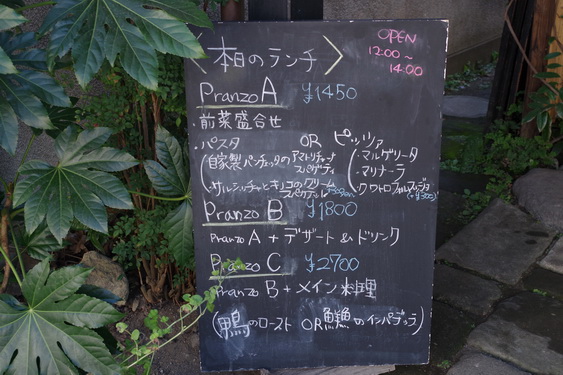 〈本日のランチ〉
OPEN
12:00~
14:00
Pranzo A ¥1450
・前菜盛合せ
・パスタ OR ピッツァ
(自家製パンチェッタのアマトリチャーナ スパゲティ
・サルシッチャとキノコのクリーム
(・マルゲリータ
・マリナーラ
・クワトロフォルマッジ
Pranzo B ¥1800
Pranzo A + デザート & ドリンク
Pranzo C ¥2700
Pranzo B + メイン料理
(鴨のロースト OR のインパデッラ)